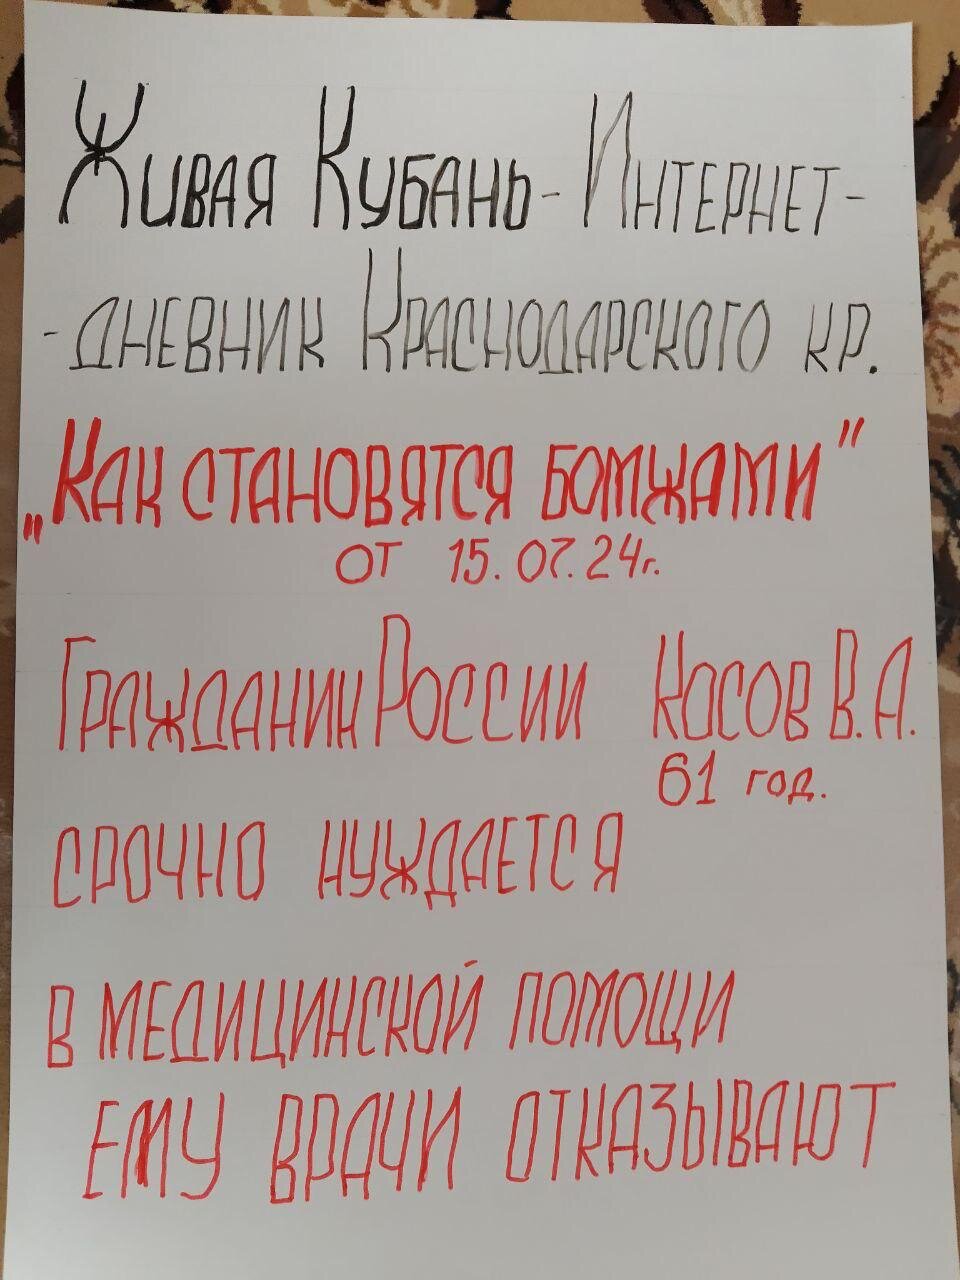 Живая Кубань - Интернет-
- дневник Краснодарского кр.
„Как становятся бомжами"
от 15.07.24г.
Гражданин России Косов В.А.
61 год.
срочно нуждается
в медицинской помощи
ему врачи отказывают